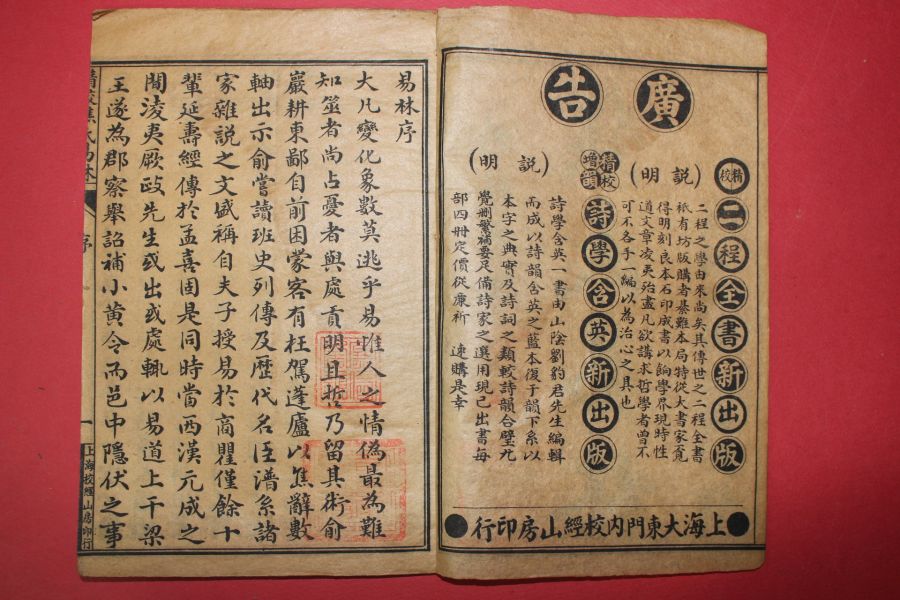 廣告
精校
二程全書新出版
(説明)
二程之學由來尚矣其傳世之二程全書
祇有坊版購者綦難本局特從大書家覓
得明刻良本石印成書以餉學界現時性
道文章凌夷殆盡凡欲講求哲學者曾不
可不各手一編以為治心之具也
精校
增韻
詩學含英新出版
(説明)
詩學含英一書由山陰劉豹君先生編輯
而成以詩韻含英之藍本復于韻下系以
本字之典實及詩詞之類較詩韻合璧尤
覺刪繁補要足備詩家之選用現已出書每
部四册定價從廉祈 速購是幸
上海大東門內校經山房印行
易林序
大凡變化象數莫逃乎易惟人之情偽最為難
知筮者尚占憂者與處貢明且哲乃留其術俞
巖耕東鄙自前困蒙客有枉駕蓬廬以焦辭數
軸出示俞嘗讀班史列傳及歷代名臣譜系諸
家雜說之文盛稱自夫子授易於商瞿僅餘十
輩延壽經傳於孟喜固是同時當西漢元成之
間淩夷厥政先生或出或處輒以易道上千梁
王遂為郡察舉詔補小黃令而邑中隱伏之事
精校焦氏易林
序
一
上海校經山房印行